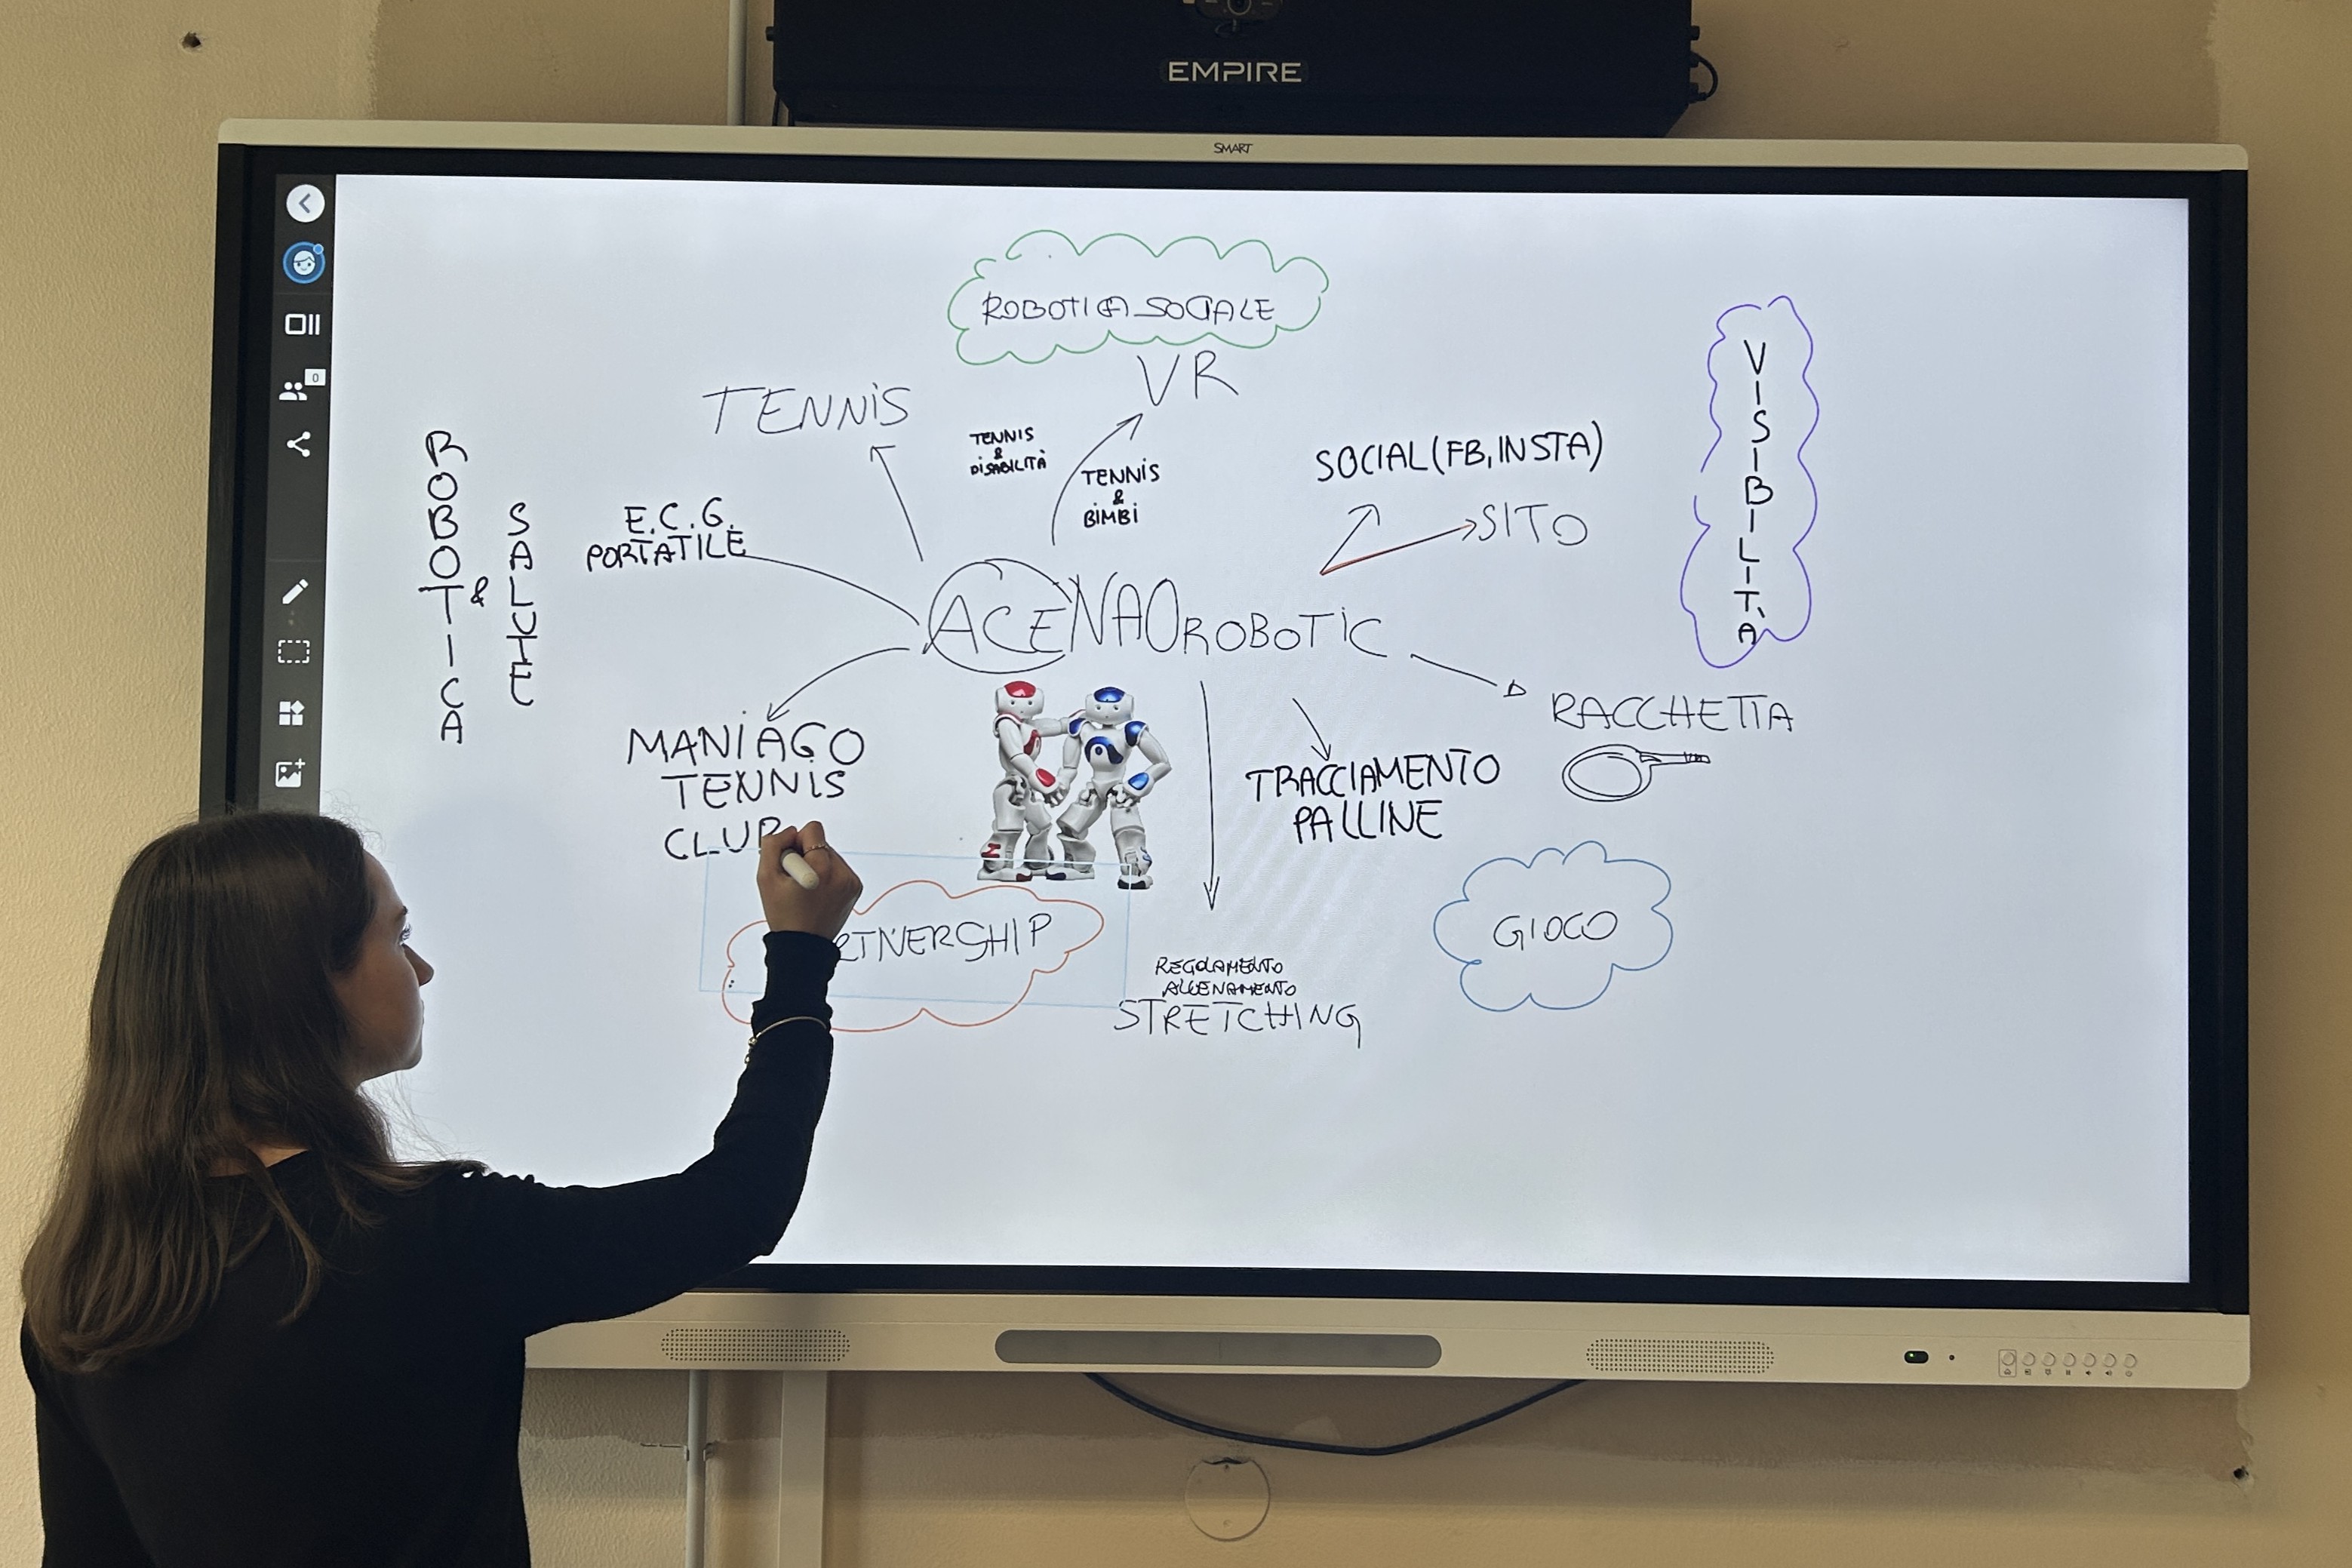 EMPIRE
SMART
0
ROBOTICA SOCIALE
VR
TENNIS
TENNIS
&
DISABILITÀ
TENNIS
&
BIMBI
SOCIAL (FB, INSTA)
SITO
VISIBILITÀ
ROBOTICA
&
SALUTE
E.C.G.
PORTATILE
ACENAOROBOTIC
MANIAGO
TENNIS
CLUB
RACCHETTA
TRACCIAMENTO
PALLINE
RTNERSHIP
GIOCO
REGOLAMENTO
ALLENAMENTO
STRETCHING